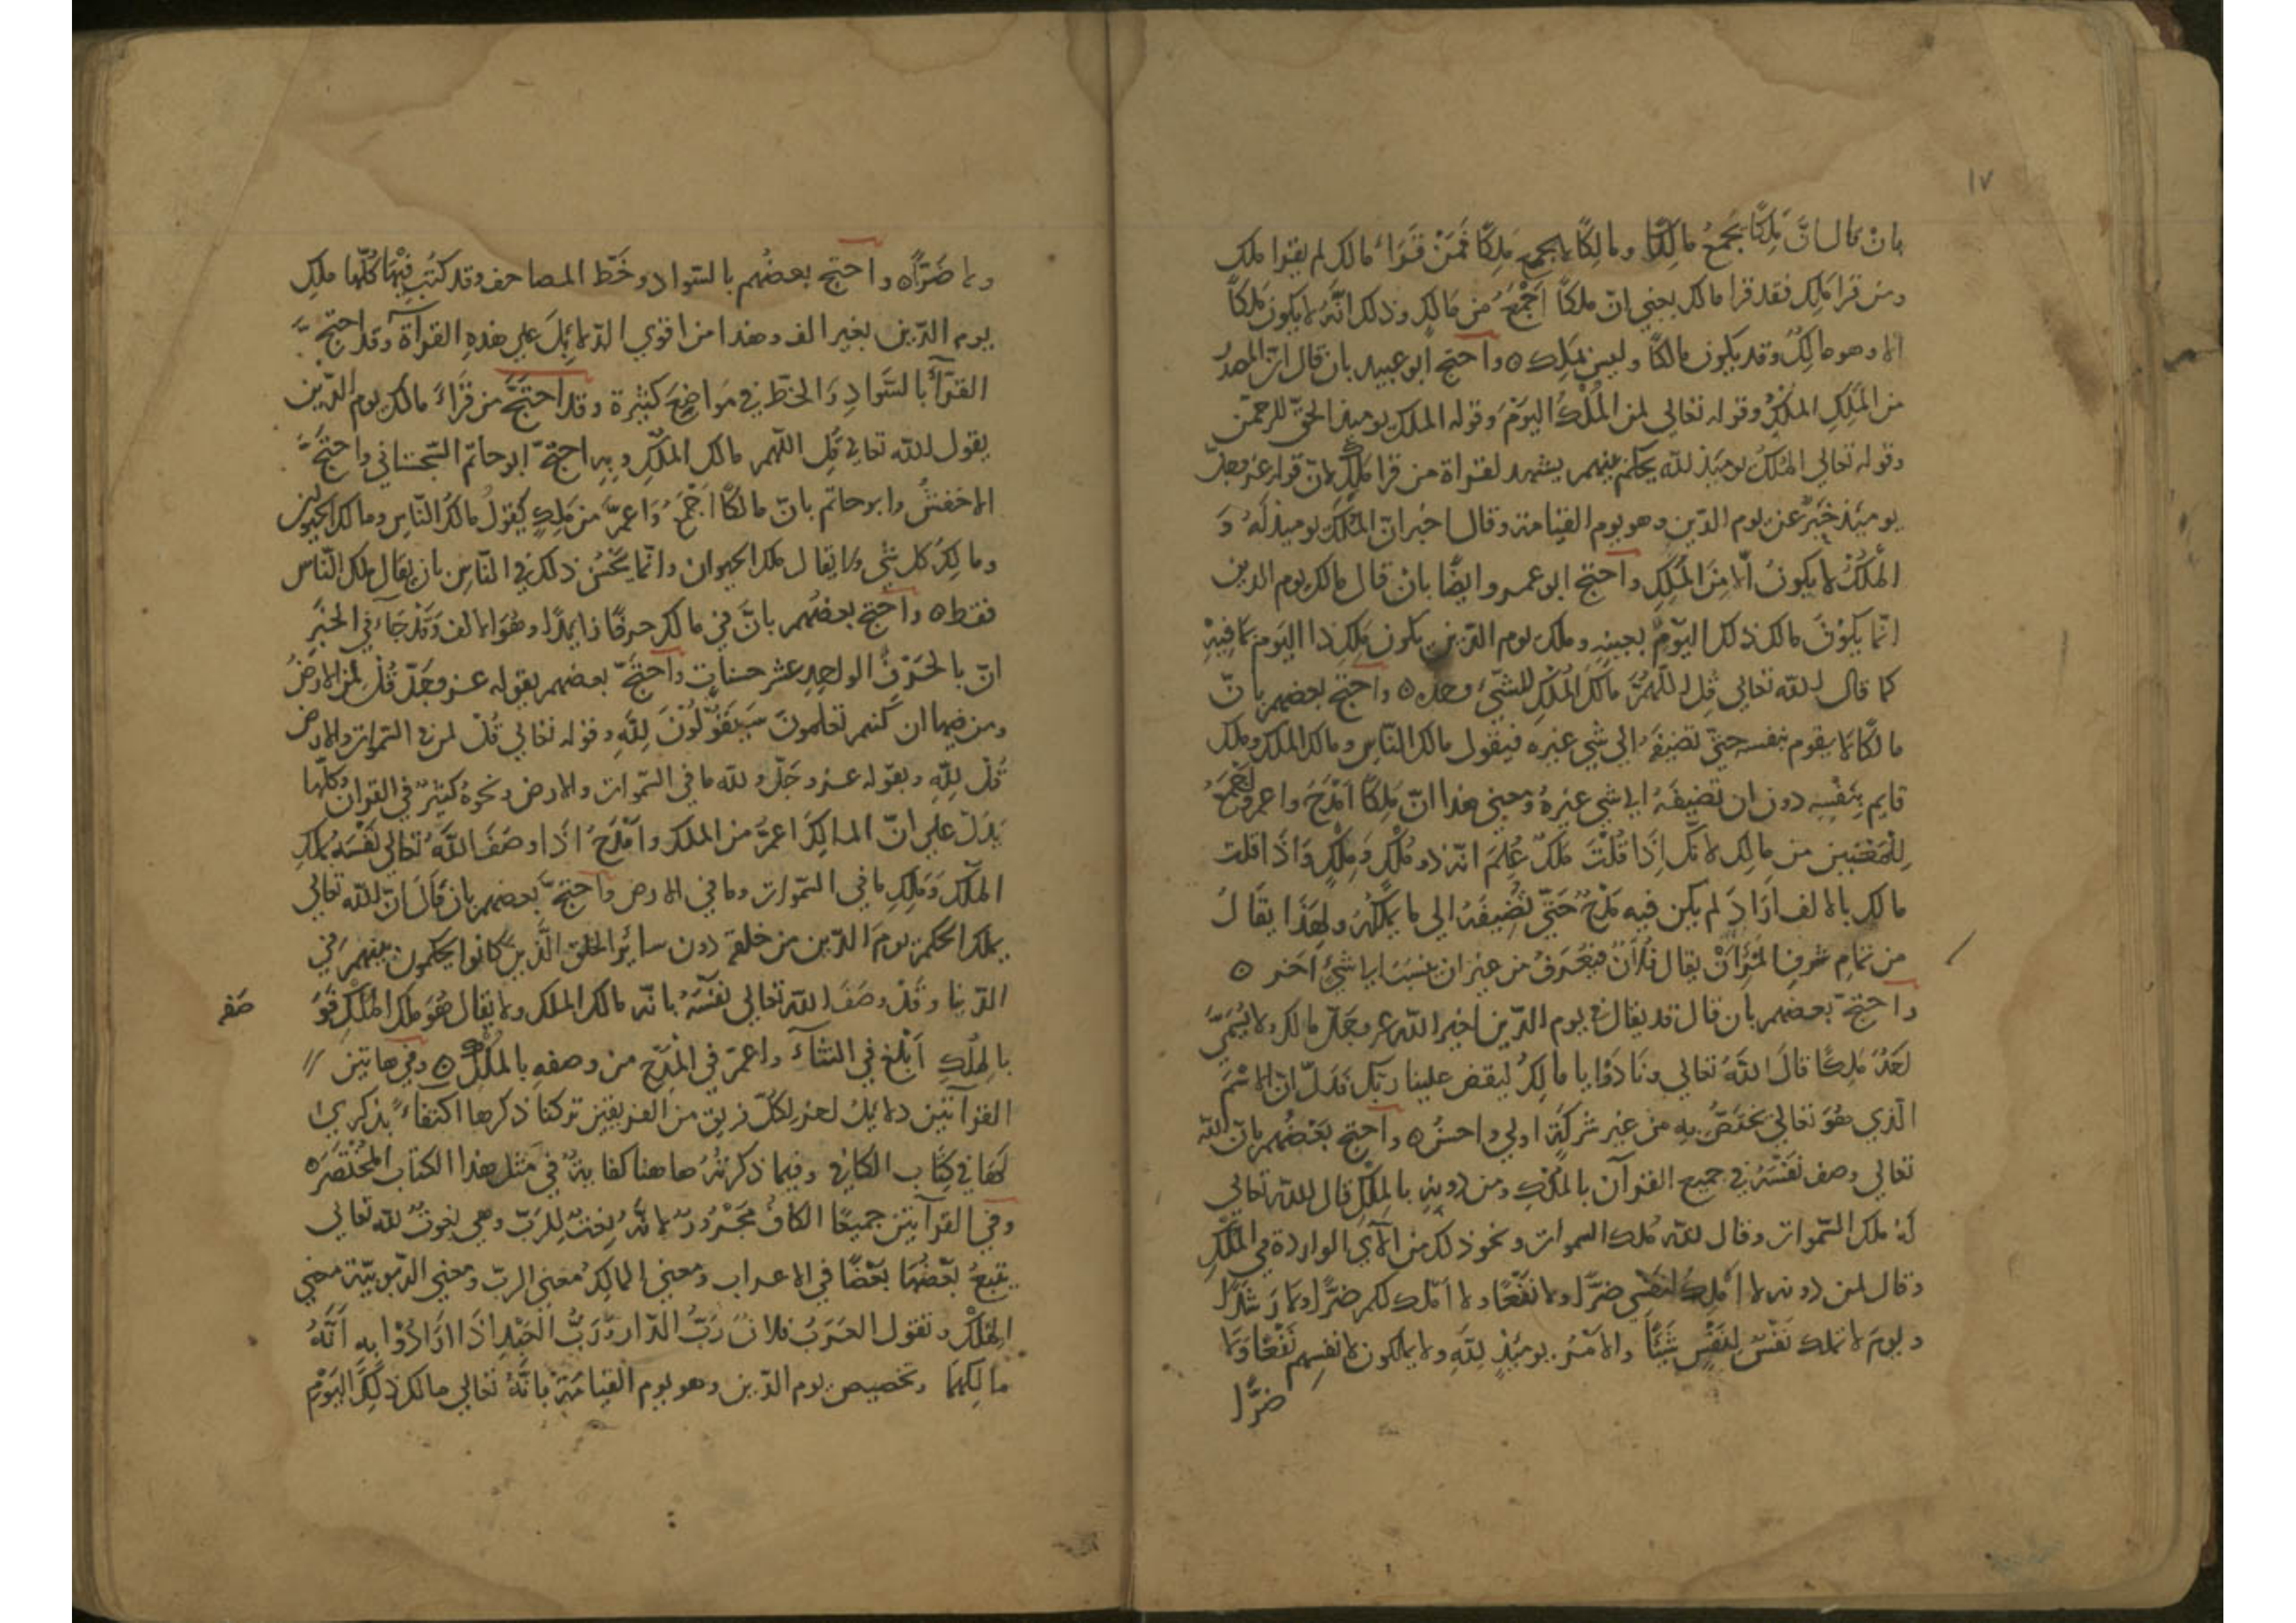 ١٧
بان قال ان مَلِكًا يجمعُ مالكًا ومالكًا لا يجمع مَلِكًا فمَنْ قَرَاءَ مالك لم يقرا ملك
ومن قرا مَلِك فقد قرا مالك يعني انّ ملكًا اَجْمَعُ من مَالِكٍ وذلك انّهُ لا يكون مَلكًا
الا وهو مالِكٌ وقد يكون مالكًا وليس بمَلِك ٥ واحتج ابو عبيد بان قال ان المصدر
من المَلِكِ المُلكُ وقوله تعالي لمن المُلْكُ اليَوْمَ وقوله الملك يوميذ الحقّ للرحمن
وقوله تعالي المُلكُ يوميَذ لله يحكم بينهم يشهد لقراة من قرا مَلِكِ لانّ قوله عز وجلّ
يوميَذ خَبَرٌ عن يوم الدّين وهو يوم القيامة وقال اخبر انّ المُلكَ يوميذ لَهُ وَ
المُلْكُ لا يكونُ اِلّا مِنَ المَلِكِ واحتج ابو عمرو ايضًا بانْ قال مالك يوم الدين
انّما يكوْنُ مالك ذلك اليَوْمُ بعينه وملك يوم الدّين يكون مَلِك ذا اليوم بمَا فِيْهِ
كما قال الله تعالي قل اللّهُمَّ مالكَ المُلْكِ للشّيء وحده ٥ واحتج بعضهم بانّ
مالكًا لا يقوم بنفسه حتيّ تضيفَهُ الي شي غيره فيقول مالك النّاسِ ومالك الملك وملك
قايم بِنَفْسِه دون ان تضيفَهُ الي شي غيرهُ ومعني هذا انّ مَلِكًا اَمْدَحُ واعمّ واَجْمَعُ
لِلْمَعْنَيين من مالِك لانّكَ اِذَا قُلْتَ مَلكٌ عُلِمَ انّه ذو مُلْكٍ ومِلْكٍ وَاذَا قلت
مالك بالالف ازَادَ لم يكن فيه مَدْحٌ حَتّيّ تُضِيفَهُ الي ما يملكُهُ ولِهَذَا يقَالُ
من تمَامِ شَرفِ المَرْاَنْ يقال فُلاَنٌ فيُعْرَفُ من غير ان ينسَبَ الي شيءٍ آخر ٥
واحتجّ بعضهم بان قال قد يقال في يوم الدّين اخبر الله عز وجَلّ مالك ولا يُسَمَّيّ
اَحَدٌ مَلِكًا قالَ اللَّهُ تعالي ونادَوْا يا مالِكُ ليقض علينا ربّك فدَلّ انّ الاسْمَ
الّذي هُوَ تعالي يختَصّ به من غير شركَةٍ اولي واحسنُ ٥ واحتج بَعْضُهم بانّ الله
تعالي وصف نَفْسَهُ في جميع القرآن بالمُلْكِ ومن دونه بالمِلْكِ قال الله تعالي
لهُ ملك السّموات وقال لله مُلك السموات ونحو ذلك من الآيَ الواردة في المُلْكِ
وقال لمن دونه لا اَملِكُ لنفسِي ضرًّا ولا نَفْعًا ولا اَملك لكم ضرًّا ولا رَشَدًا
ويومَ لا تملك نَفْسٌ لِنَفْسٍ شَيْئًا والاَمْرُ يوميَذٍ لِلَّهِ ولا يملكون لانفسِهم نَفْعًا وَلا
ضرًّا
ولا ضَرًّا ٥ واحتج بعضُهم بالسّواد وخَطّ المصاحف وقد كتبَ فِيْهَا كُلّها ملك
يوم الدّين بغير الف وهذا من اقوي الدّلائِلَ علي هذهِ القرآة وقد احتجّ
القرّآءُ بالسَّوادِ وَالخطّ في مَواضِعَ كثيْرة وقد احتَجَّ من قَرَاءَ مالك يوم الدّين
بقول الله تعالي قُلِ اللّهم مالك الملكِ وبِهِ احتجّ ابو حاتم السّجستاني واحتَجَّ
الاخفشُ وابو حاتم بانّ مالكًا اَجْمَعُ وَاَعمَّ من مَلِكٍ كقولُ مالكُ النّاسِ ومالك الحيوان
ومالِكُ كل شي ولا يقال ملك الحيوان وانّما يحْسُنُ ذلك في النّاسِ بان يقال ملك النّاسِ
فقط ٥ واحتج بعضُهم بانّ في مالك حرفًا زايدًا وهُوَ الالف وَقَدْ جَآءَ في الخبَرِ
انّ بالحَرْفِ الواحِدِ عشر حسناتٍ واحتَجّ بعضهم بقوله عز وجَلّ قُلْ لمن الارضُ
ومن فيها ان كنتم تعلمونَ سَيَقوْلُوْنَ لِلَّهِ وقوله تعالي قُلْ لمن ما في السّموات والارض
قُلْ لِلّهِ وبقوله عز وجَلّ ولله ما في السّموات والارض ونحوهُ كثيْرٌ في القرآن وكلّها
يَدَلّ علي انّ المالِكَ اعمَّ من الملك واَمْدَحُ اذَا وصَفَ اللَّهُ تعالي نَفْسَهُ بملكِ
الملك وَمَلِكِ ما في السّموات وما في الارض واحتجّ بعضهم بان قَالَ انّ الله تعالي
يملك الحكم يومَ الدّين من خلقهِ دون سائِرِ الخلقِ الَّذِينَ كانوا يحكمون بينهم في
الدّنيا وقَدْ وصَفَ اللهُ تعالي نَفْسَهُ بانّه مالك الملك ولا يقال هُوَ ملك المُلْكِ فوَ
صفه
بالمِلْكِ اَبْلغ في الثنآءَ واعمّ في المَدْح من وصفهِ بالمُلْكِ ٥ وفي هاتين
القرآتَين دلايلُ اخر لِكُلّ فريق من الفريقين تركنا ذكرها اكتفاءً بذكري
لهَا في كِتَاب الكافي وفيما ذكرتُهُ هاهنا كفايةٌ في مثل هذا الكتاب المُخْتَصَر ٥
وفي القرآتين جميعًا الكافُ مَجْرُورٌ لانّهُ نعتٌ لِلرَبّ وهي نعوتٌ لله تعالي
يَتبعُ بَعْضُهَا بَعْضًا في الاعراب ومعني المالِكُ معني الربّ ومعني الرّبوبيّة معني
المِلْكُ وتقول العَرَبُ فلانٌ رَبُّ الدّار وَرَبُّ العَبْدِ اذَا ارَادُوْا بِهِ اَنَّهُ
مالِكهَما وتخصيص يوم الدّين وهو يوم القيامَة بانّهُ تعالي مالك ذلِكَ اليَوْمِ